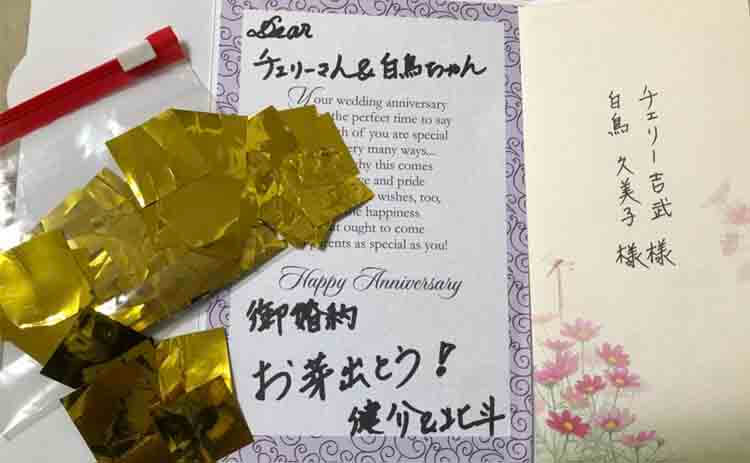 Dear
チェリーさん&白鳥ちゃん
Your wedding anniversary
the perfect time to say
th of you are special
ery many ways...
hy this comes
e and pride
wishes, too,
e happiness
t ought to come
rents as special as you!
Happy Anniversary
御婚約
お芽出とう!
健介と北斗
チェリー吉武様
白鳥久美子様